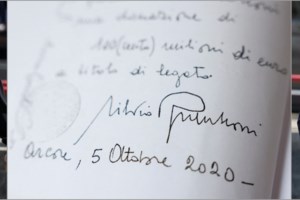 una donazione di
100 (cento) milioni di euro
a titolo di legato
Silvio Berlusconi
Arcore, 5 Ottobre 2020